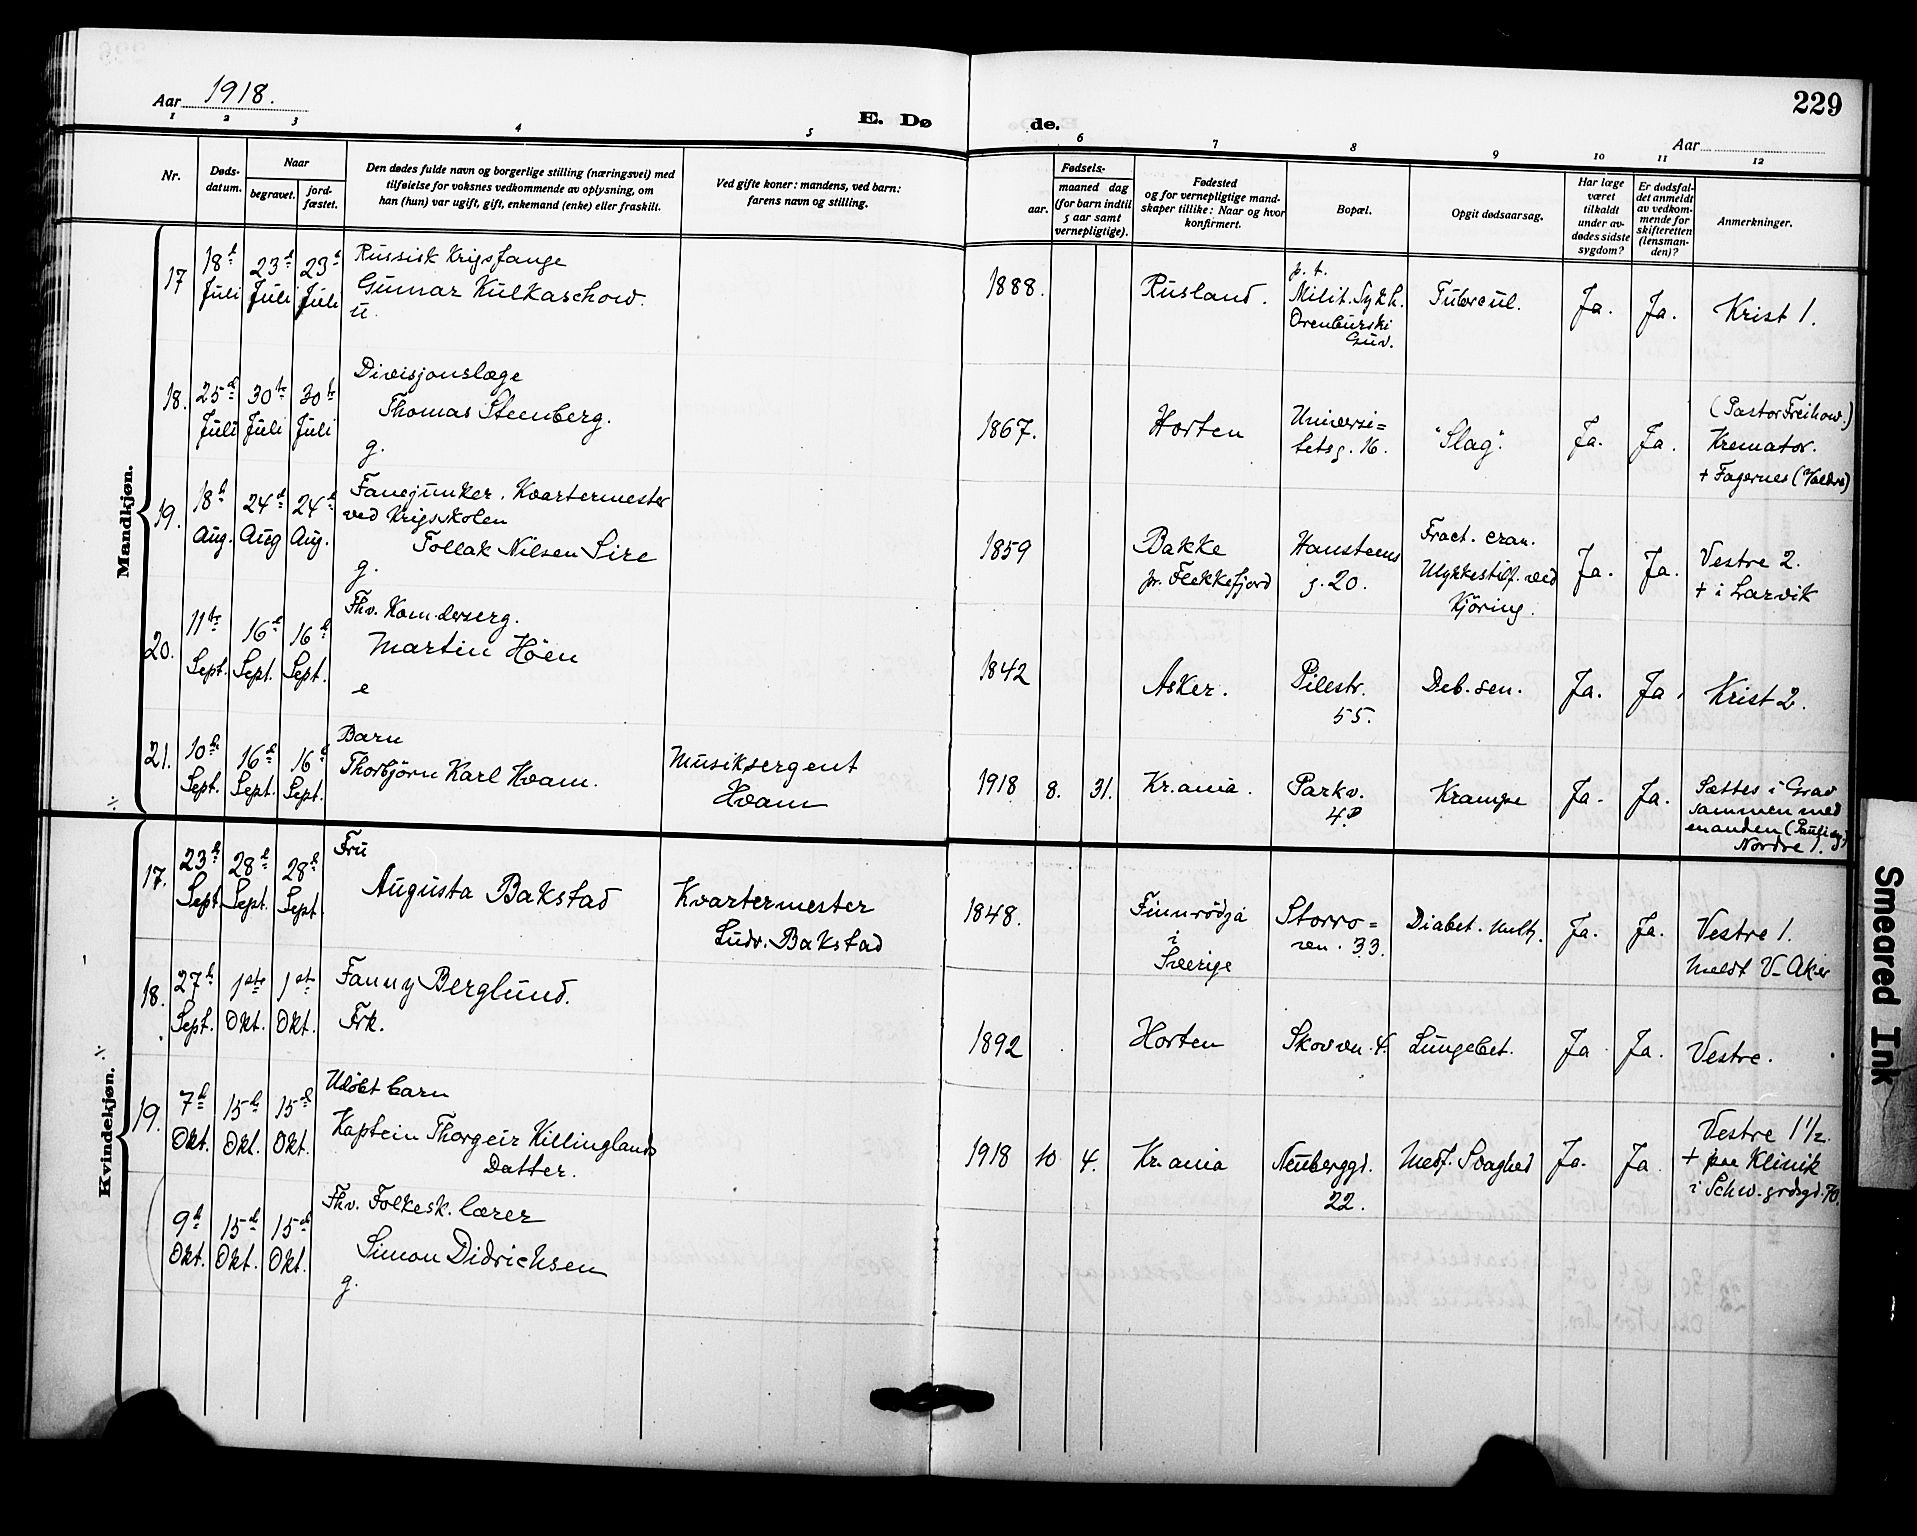 Aar 1918.
E. Dø
de.
229
Aar
1
2
3
4
5
6
7
8
9
10
11
12
Nr.
Døds-
datum.
Naar
begravet.
jord-
fæstet.
Den dødes fulde navn og borgerlige stilling (næringsvei) med
tilføielse for voksnes vedkommende av oplysning, om
han (hun) var ugift, gift, enkemand (enke) eller fraskilt.
Ved gifte koner: mandens, ved barn:
farens navn og stilling.
Fødsels-
aar.
maaned dag
(for barn indtil
5 aar samt
vernepligtige).
Fødested
og for vernepligtige mand-
skaper tillike: Naar og hvor
konfirmert.
Bopæl.
Opgit dødsaarsag.
Har læge
været
tilkaldt
under av-
dødes sidste
sygdom?
Er dødsfal-
det anmeldt
av vedkom-
mende for
skifteretten
(lensman-
den)?
Anmerkninger.
Mandkjøn.
17
18d Juli
23d Juli
23d Juli
Russisk Krigsfange
Gunnar Kulkaschow.
u.
1888.
Rusland.
p. t.
Milit. Sykh.
Orenburski
Guv.
Tubercul.
Ja.
Ja.
Krist 1.
18.
25d Juli
30te Juli
30te Juli
Divisjonslæge
Thomas Steenberg.
g.
1867.
Horten
Universi=
tetsg. 16.
"Slag".
Ja.
Ja.
(Pastor Freihow.)
Kremator.
+ Fagernes (Valdres)
19.
18d Aug.
24d Aug
24d Aug.
Fanejunker. Kvartermester
ved Krigsskolen
Tollak Nilsen Sire
g.
1859
Bakke
pr. Flekkefjord
Hansteens
g. 20.
Fract. cran.
Ulykkestilf. ved
Kjöring.
Ja.
Ja.
Vestre 2.
+ i Larvik
20.
11te Sept.
16d Sept.
16d Sept.
Fhv. Kom.derserg.
Martin Höen
e
1842
Asker.
Pilestr.
55.
Deb. sen.
Ja.
Ja.
Krist 2.
21.
10d Sept.
16d Sept.
16d Sept.
Barn
Thorbjörn Karl Hvam.
Musiksergent
Hvam
1918
8.
31.
Kr.ania.
Parkv.
4D
Krampe
Ja.
Ja.
Sættes i Grav
sammen med
manden
Nordre 1.
Kvindekjøn.
17.
23d Sept.
28d Sept.
28d Sept.
Fru
Augusta Bakstad
Kvartermester
Ludv. Bakstad
1848.
Finnrödja
i
Sverige
Storro=
ven. 33.
Diabet. mell.
Ja.
Ja.
Vestre 1.
Meldt V-Aker
18.
27d Sept.
1ste Okt.
1ste Okt.
Fanny Berglund.
Frk.
1892
Horten
Skovvn. 4.
Lungebet.
Ja
Ja.
Vestre.
19.
7d Okt.
15d Okt.
15d Okt.
Udöbt barn
Kaptein Thorgeir Killinglands
Datter.
1918
10
4.
Kr.ania
Neubergd.
22.
Medf. Svaghed
Ja.
Ja.
Vestre 1 1/2.
+ paa Klinik
i Schw.grdsgd. 70.
9d Okt.
15d Okt.
15d Okt.
Fhv. Folkesk. lærer
Simon Didrichsen
g.
Smeared Ink